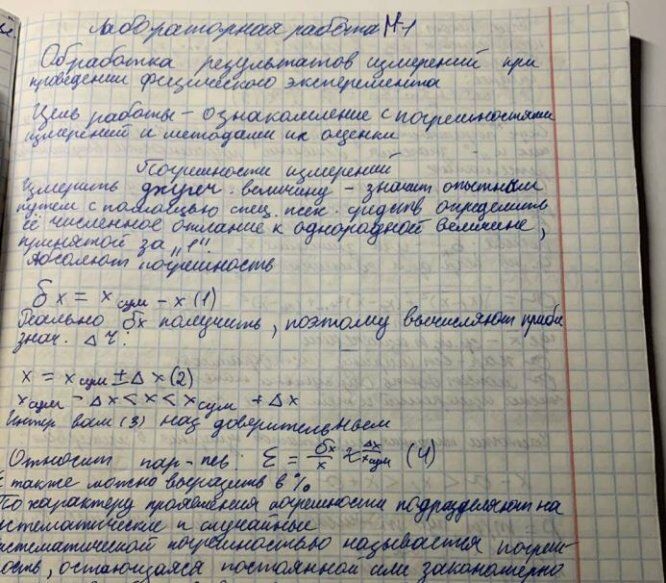 Лабораторная работа №1
Обработка результатов измерений при
проведении физического эксперемента
Цель работы – ознакомление с погрешностями
измерений и методами их оценки
Погрешности измерений
Измерить величину – значит опытным
путем с помощью спец. тех. определить
её численное к однородной величине,
принятой за „1"
Абсолют погрешность
δx = x сум – x (1)
Реально δx получить, поэтому вычисляют
знач.
x = x сум ± Δx (2)
x сум – Δx < x < x сум + Δx
Интер вал (3) наз доверительным
Относит : ε = δx/x ≈ Δx/x сум (4)
также можно выразить в %
По характеру проявления погрешности подразделяют на
систематические и случайные
систематической погрешностью называется погреш
ность, остающаяся постоянной или закономерно